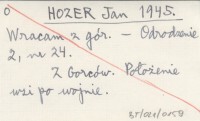 O HOZER Jan 1945.
Wracam z gór. – Odrodzenie
2, nr 24.
Z Gorców. Położenie
wsi po wojnie.